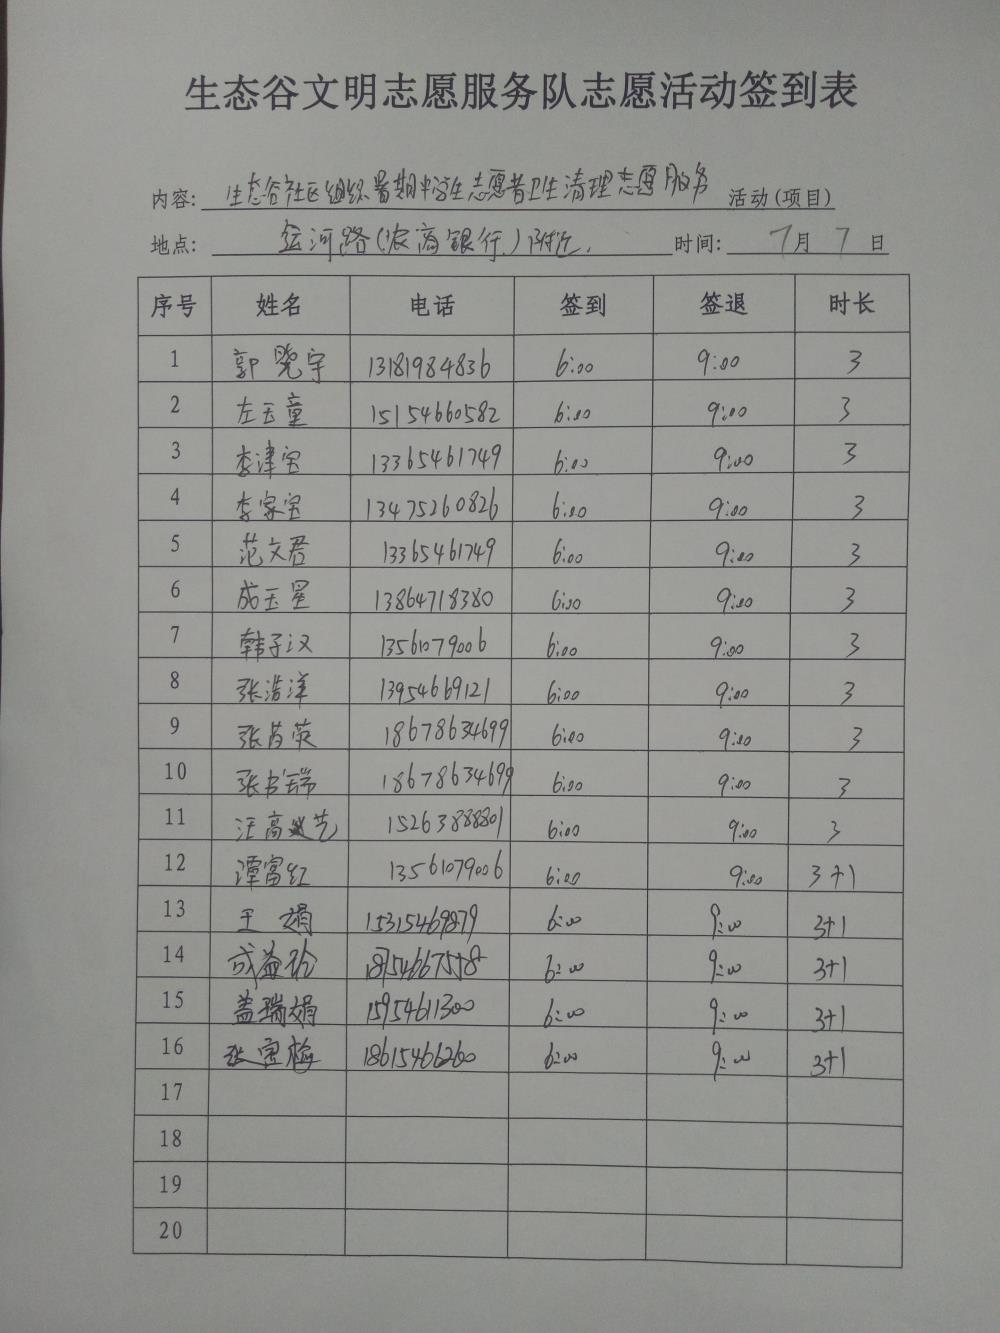 生态谷文明志愿服务队志愿活动签到表
内容: 生态谷社区组织暑期中学生志愿者卫生清理志愿服务 活动(项目)
地点: 运河路(农商银行)附近. 时间: 7月7日
序号 姓名 电话 签到 签退 时长
1 郭晓宇 13181984836 6:00 9:00 3
2 左玉童 15154660582 6:00 9:00 3
3 李津宝 13365461749 6:00 9:00 3
4 李家宝 13475260826 6:00 9:00 3
5 范文君 13365461749 6:00 9:00 3
6 成玉星 13864718380 6:00 9:00 3
7 韩子汉 13561079006 6:00 9:00 3
8 张浩洋 13954669121 6:00 9:00 3
9 张芮荧 18678634699 6:00 9:00 3
10 张书瑞 18678634699 6:00 9:00 3
11 汪高艺 15263888801 6:00 9:00 3
12 谭富红 13561079006 6:00 9:00 3+1
13 王娟 15315469879 6:00 9:00 3+1
14 成益 6:00 9:00 3+1
15 盖瑞娟 15954611300 6:00 9:00 3+1
16 张宝梅 18615466260 6:00 9:00 3+1
17
18
19
20